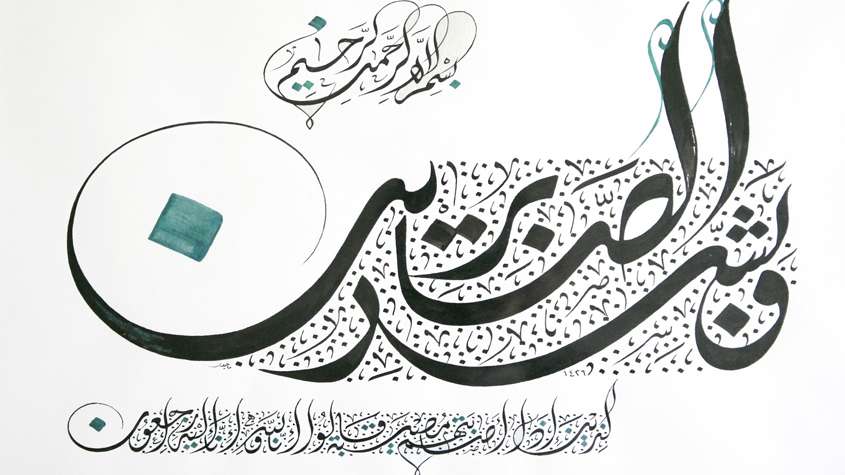 بسم الله الرحمن الرحيم
وبشر الصابرين
١٤٢٦
الذين إذا أصابتهم مصيبة قالوا إنا لله وإنا إليه راجعون